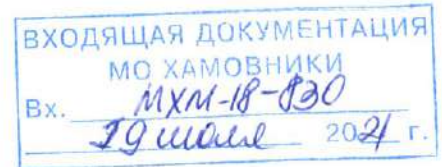 ВХОДЯЩАЯ ДОКУМЕНТАЦИЯ
МО ХАМОВНИКИ
Вх. МХМ-18-830
19 июля 2021 г.